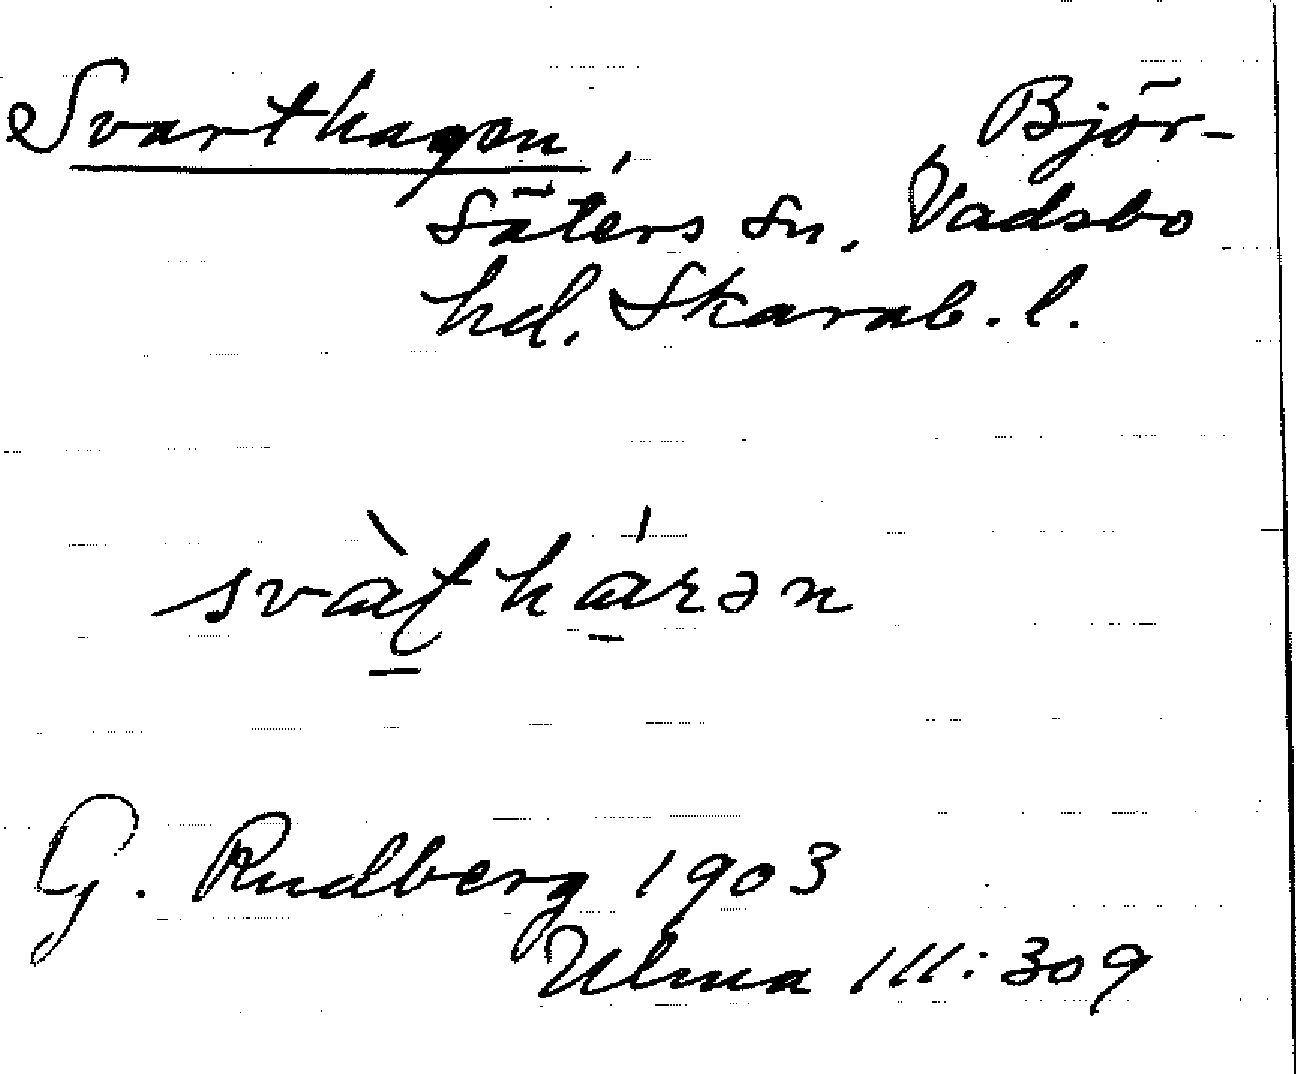 Svarthagen, Björ-
säters sn, Vadsbo
hd. Skarab. l.
svàʈhárən
G. Rudberg 1903
Ulma 111:309